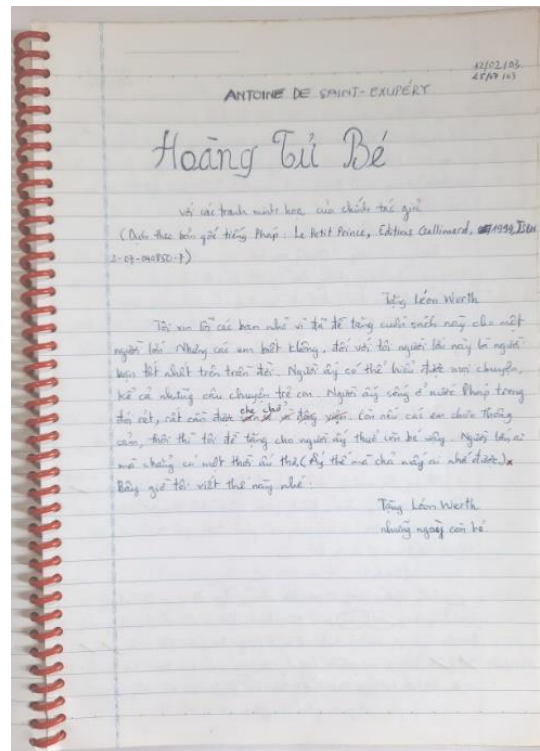 12/02/03
25/07/03
ANTOINE DE SAINT-EXUPÉRY
Hoàng Tử Bé
với các tranh minh hoạ của chính tác giả
(Dịch theo bản gốc tiếng Pháp: Le Petit Prince, Editions Gallimard, 1999,
2-07-040850-7)
Tặng Léon Werth
Tôi xin lỗi các bạn nhỏ vì đã đề tặng cuốn sách này cho một
người lớn. Nhưng các em biết không, đối với tôi người lớn này là người
bạn tốt nhất trên trần đời. Người ấy có thể hiểu được mọi chuyện,
kể cả những câu chuyện trẻ con. Người ấy sống ở nước Pháp trong
đói rét, rất cần được che chở. Còn nếu các em chưa thông
cảm, thôi thì tôi đề tặng cho người ấy thuở còn bé vậy. Người lớn ai
mà chẳng có một thời ấu thơ. (Ấy thế mà chả mấy ai nhớ được).
Bây giờ tôi viết thế này nhé:
Tặng Léon Werth
những ngày còn bé